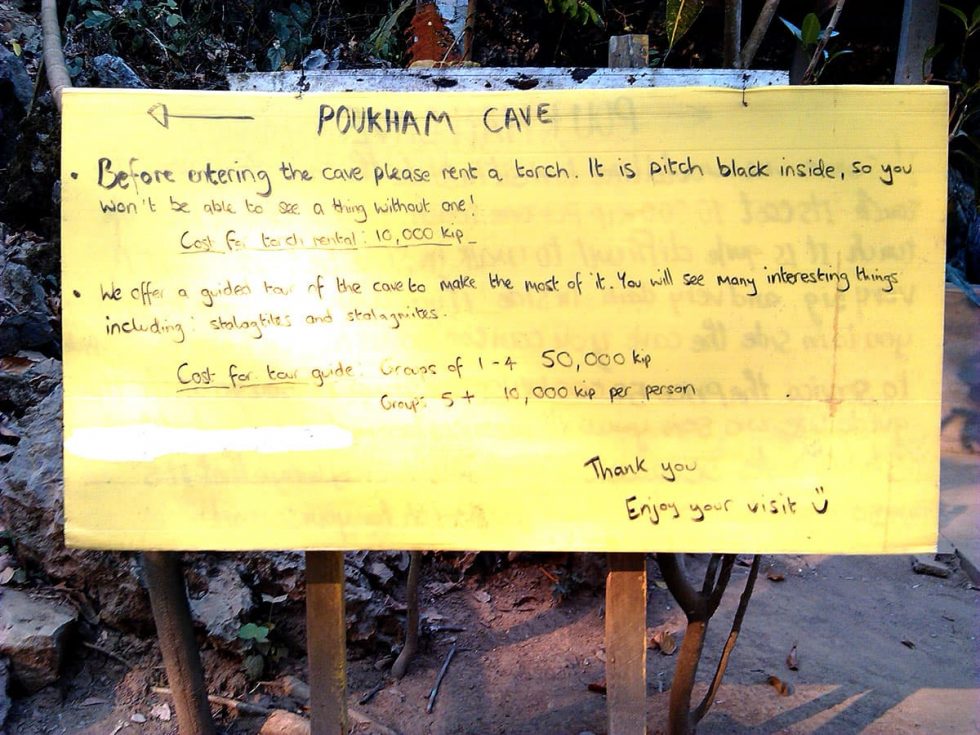 POUKHAM CAVE
• Before entering the cave please rent a torch. It is pitch black inside, so you
won't be able to see a thing without one!
Cost for torch rental: 10,000 kip
• We offer a guided tour of the cave to make the most of it. You will see many interesting things
including: stalagtites and stalagmites.
Cost for tour guide: Groups of 1-4 50,000 kip
Groups 5+ 10,000 kip per person
Thank you
Enjoy your visit